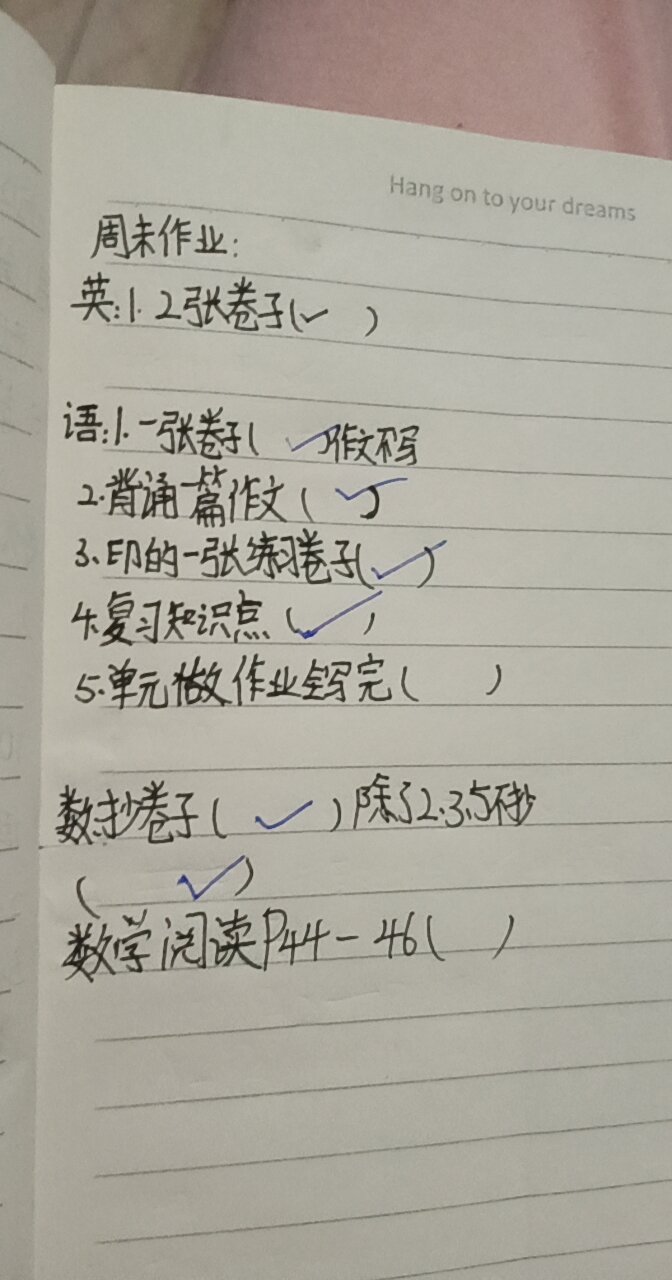 Hang on to your dreams
周末作业:
英:1.2张卷子(✓ )
语:1.一张卷子( ✓)作文不写
2.背诵一篇作文(✓)
3.印的一张练习卷子(✓)
4.复习知识点(✓ )
5.单元做作业全写完( )
数:抄卷子(✓)除了2.3.5不抄
( ✓)
数学阅读P44-46( )